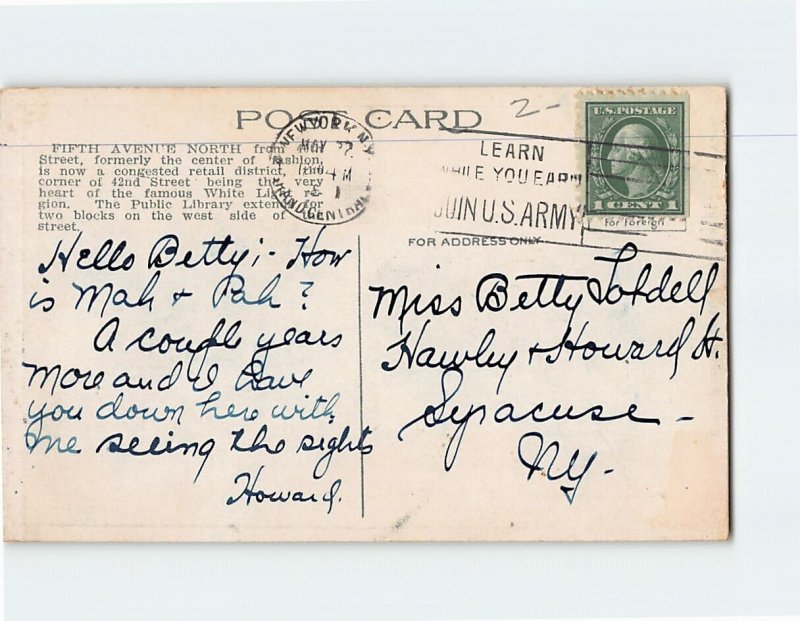 POST CARD
2-
FIFTH AVENUE NORTH from
Street, formerly the center of fashion,
is now a congested retail district, the
corner of 42nd Street being the very
heart of the famous White Light re-
gion. The Public Library extends for
two blocks on the west side of
street.
NEW YORK, N.Y.
MAY 22
4 PM
GRAND CENTRAL
LEARN
WHILE YOU EARN
JOIN U.S. ARMY
U.S. POSTAGE
1 CENT 1
for foreign
FOR ADDRESS ONLY
Hello Betty:- How
is Mah + Pah?
A couple years
more and I have
you down here with
me seeing the sights
Howard.
Miss Betty
Hawley + Howard St.
Syracuse -
NY-